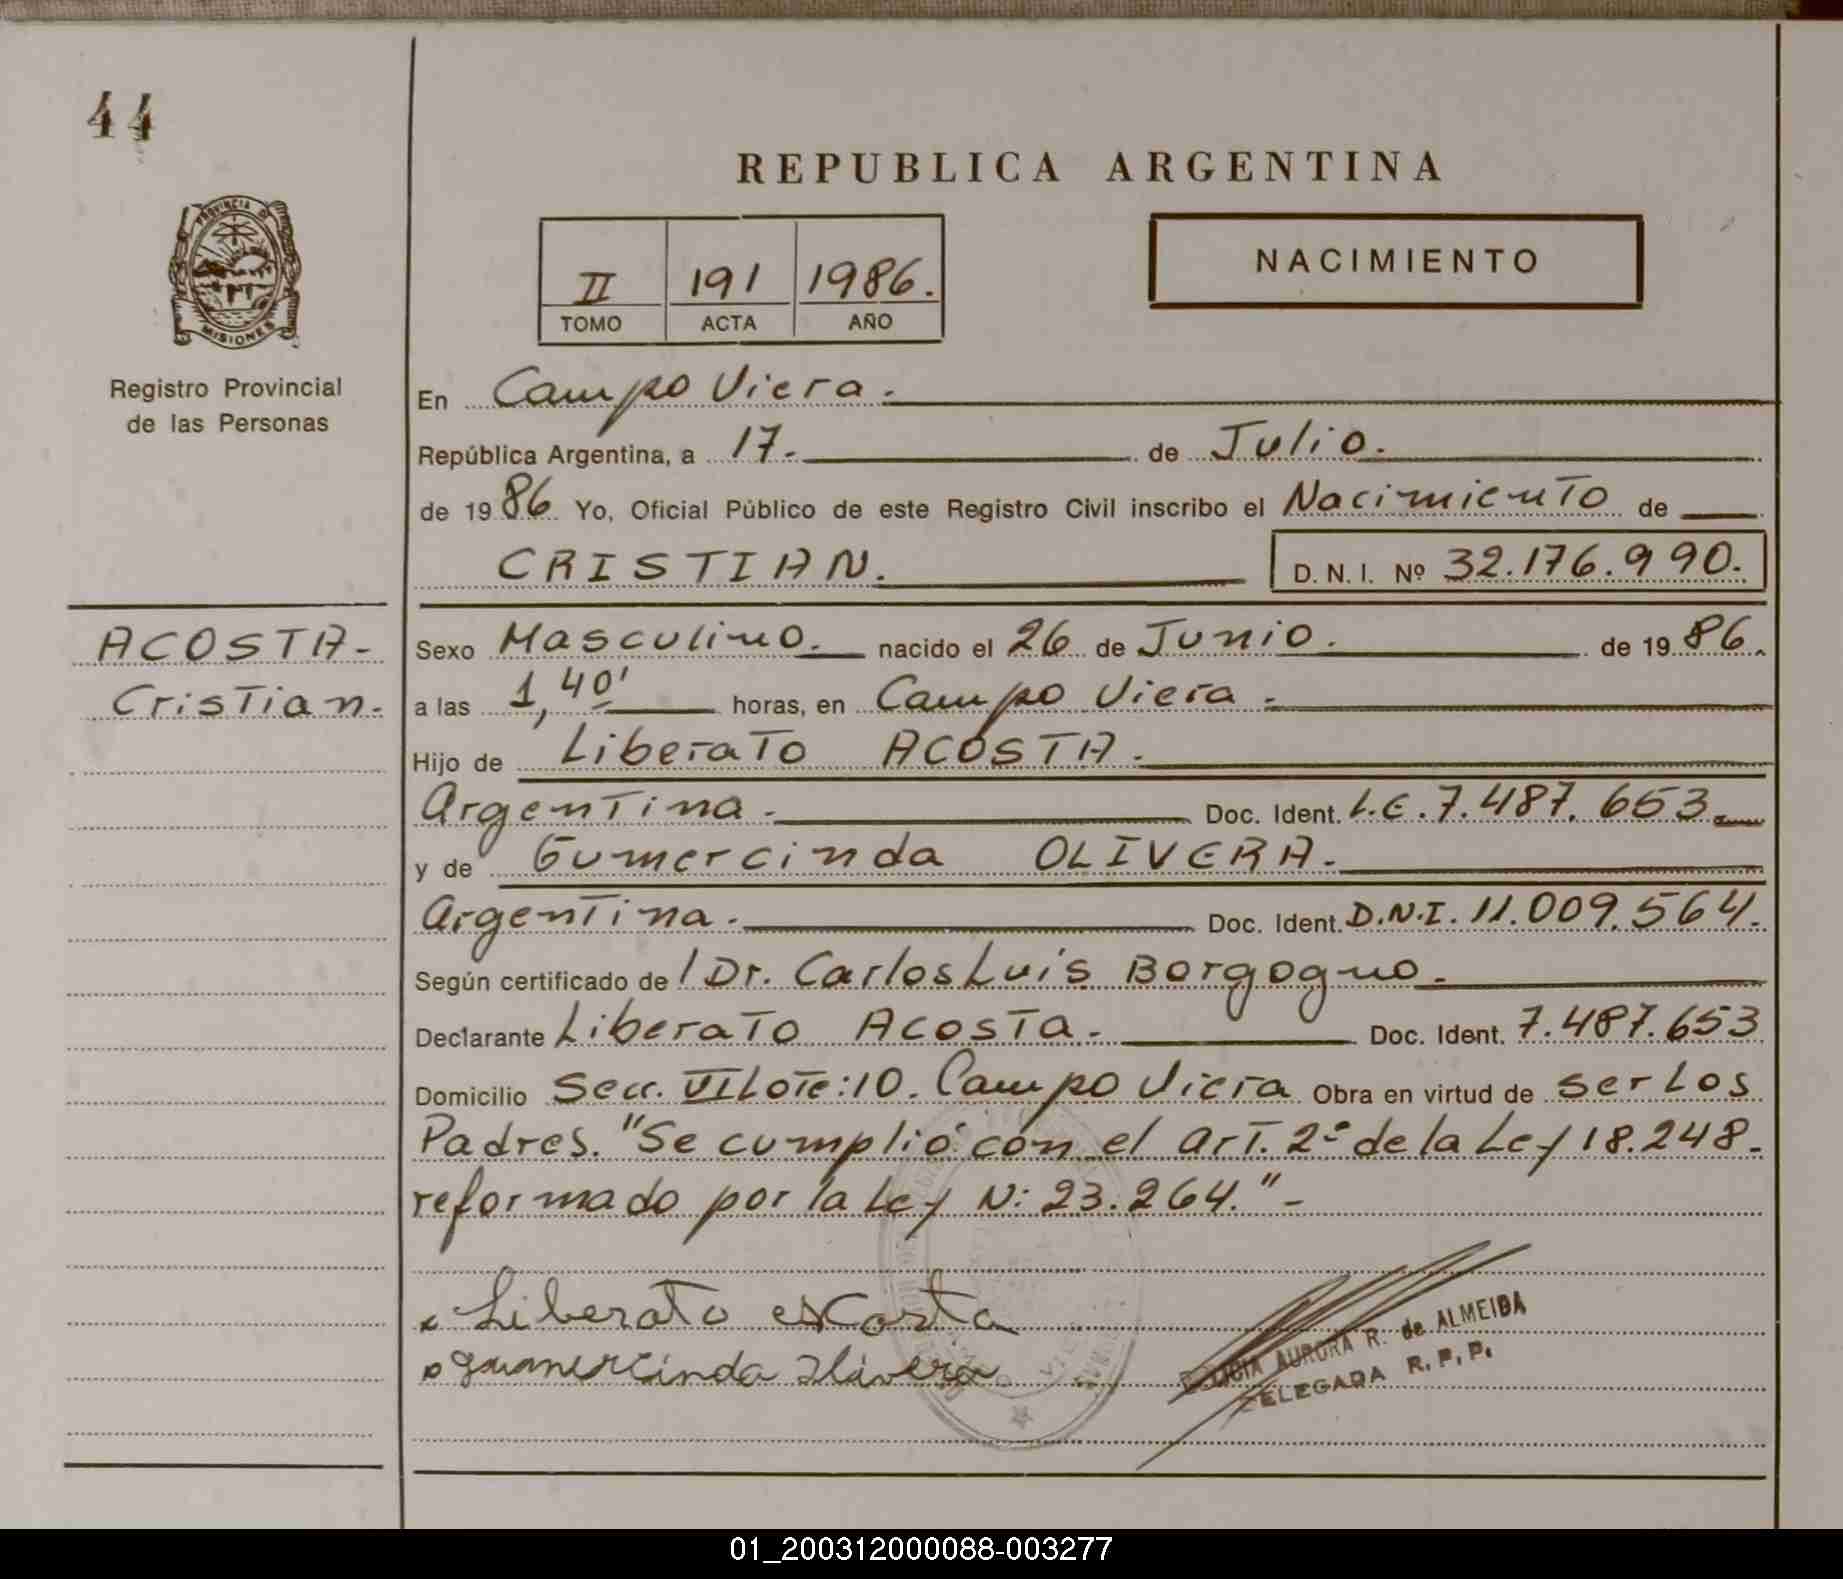 44
REPUBLICA ARGENTINA
PROVINCIA DE
MISIONES
II 191 1986.
TOMO ACTA AÑO
NACIMIENTO
Registro Provincial
de las Personas
En Campo Viera.
República Argentina, a 17. de Julio.
de 1986 Yo, Oficial Público de este Registro Civil inscribo el Nacimiento de
CRISTIAN. D.N.I. Nº 32.176.990.
ACOSTA-
Cristian.
Sexo Masculino. nacido el 26 de Junio. de 1986.
a las 1,40' horas, en Campo Viera.
Hijo de Liberato ACOSTA.
Argentina. Doc. Ident. L.E. 7.487.653
y de Gumercinda OLIVERA.
Argentina. Doc. Ident. D.N.I. 11.009.564.
Según certificado de Dr. Carlos Luis Borgogno.
Declarante Liberato Acosta. Doc. Ident. 7.487.653
Domicilio Secc. VI Lote: 10. Campo Viera Obra en virtud de ser Los
Padres. "Se cumplió con el art. 2º de la Ley 18.248-
reformado por la Ley N: 23.264."-
Liberato
AURORA R. de ALMEIDA
DELEGADA R.P.P.
01_200312000088-003277